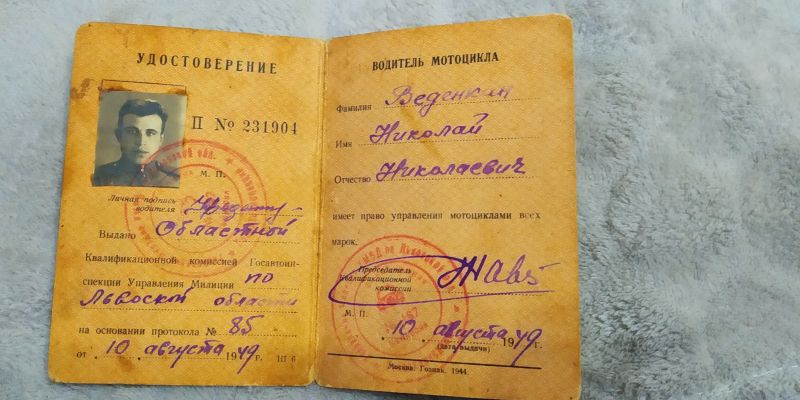 УДОСТОВЕРЕНИЕ
II № 231904
М. П.
Личная подпись
водителя
Выдано Областной
Квалификационной комиссией Госавтоин-
спекции Управления Милиции по
Львоской области
на основании протокола № 85
от 10 августа 1949 г.
ВОДИТЕЛЬ МОТОЦИКЛА
Фамилия Веденкин
Имя Николай
Отчество Николаевич
имеет право управления мотоциклами всех
марок.
Председатель
Квалификационной
комиссии
М. П.
10 августа 1949 г.
(дата выдачи)
Москва. Гознак. 1944.